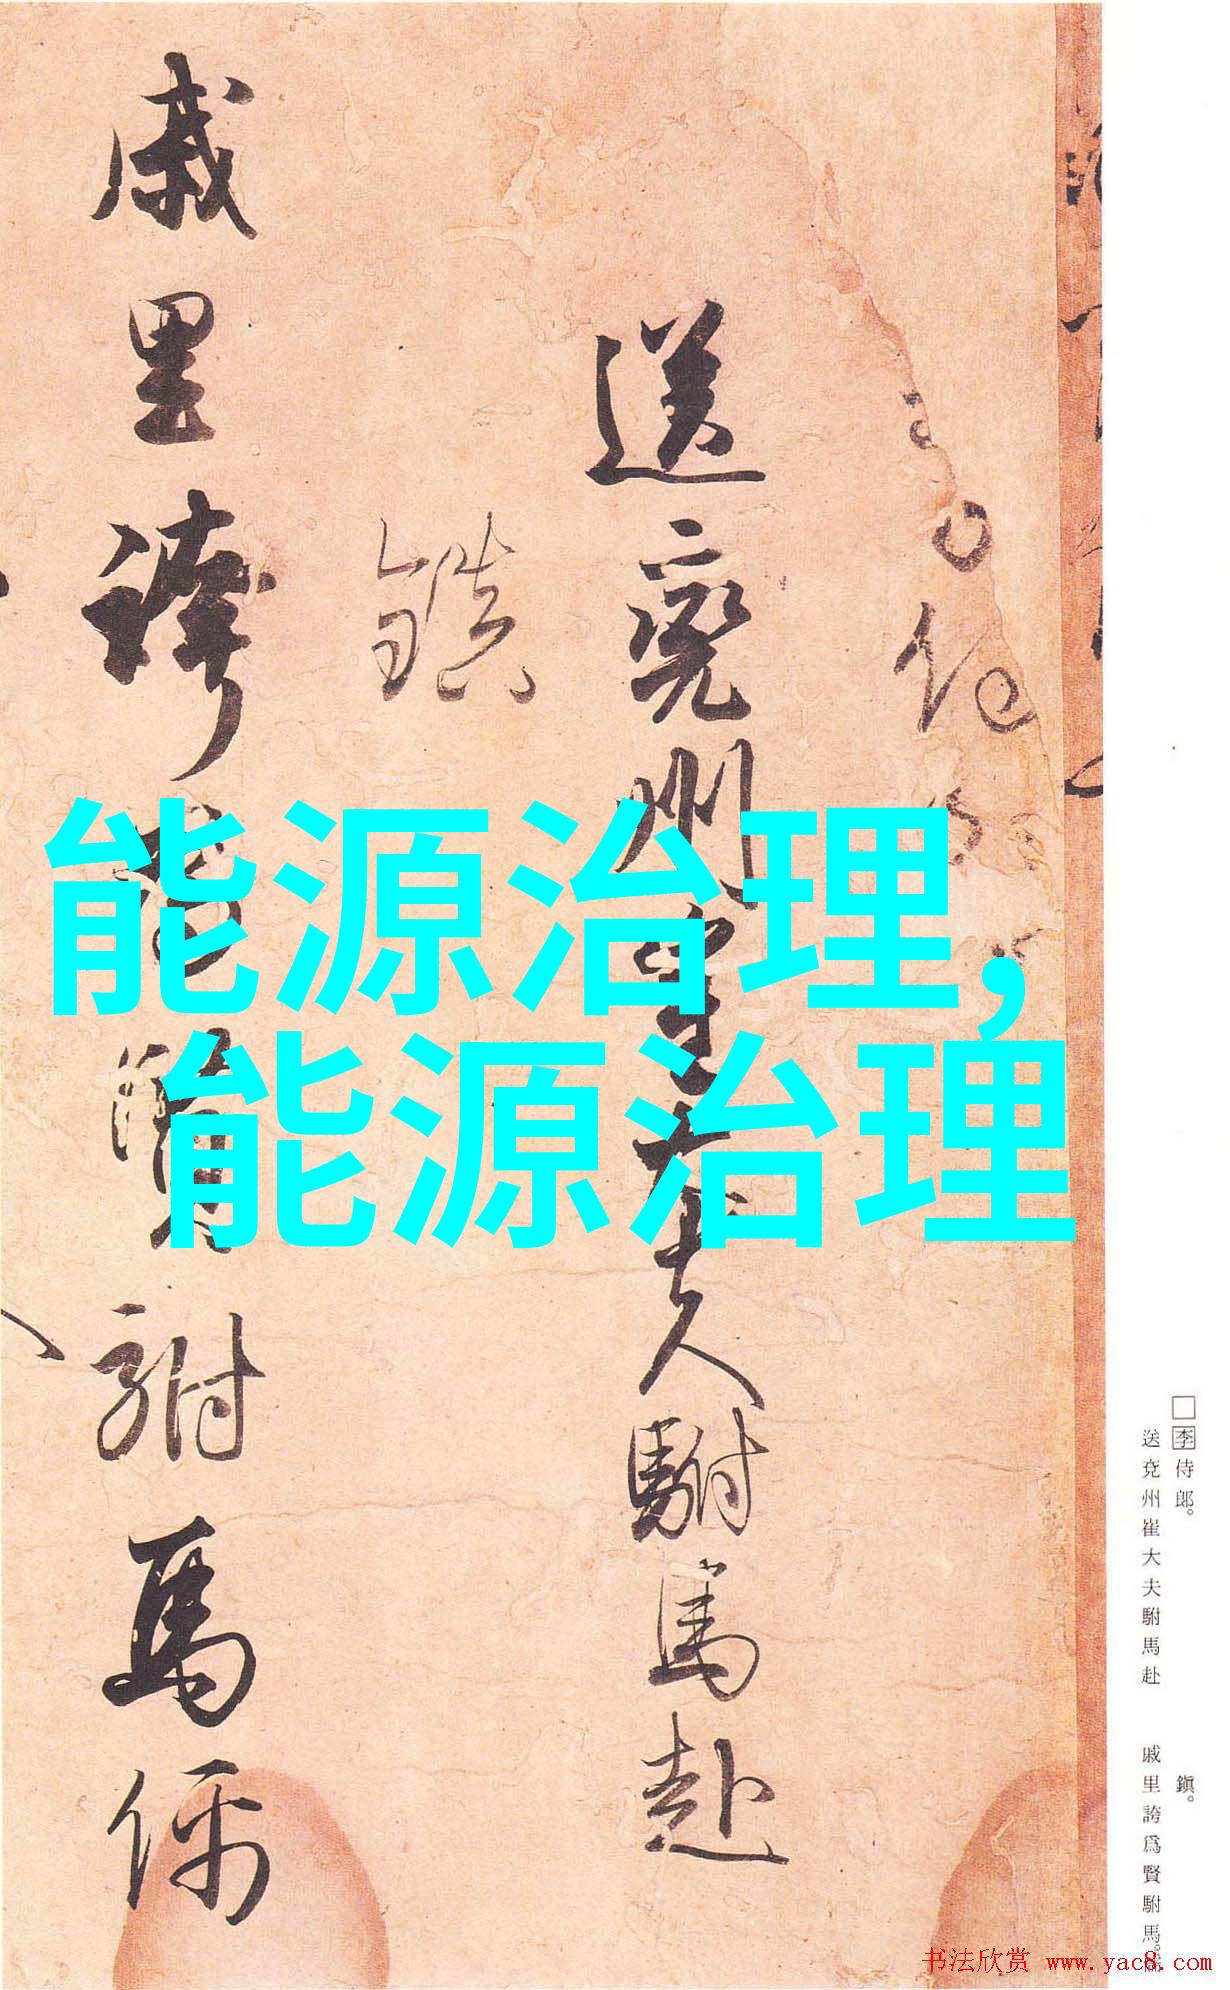 送兖州崔大夫駙馬赴
鎮
戚里誇為賢駙馬儒
能源治理，
能源治理
□李侍郎。
送兖州崔大夫駙馬赴
鎭。
戚里誇爲賢駙馬。儒
书法欣赏 www.yac8.com